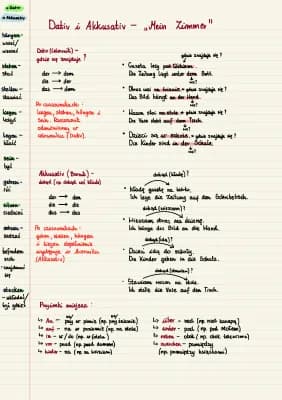 Dativ i Akkusativ – „Mein Zimmer"
Dativ
Akkusativ
hängen-
wisieć/
wieszać
stehen-
stać
stellen-
stawiać
liegen-
leżeć
legen-
kłaść
sein-
być
gehen-
iść
sitzen-
siedzieć
setzen-
sadzać
befinden
sich
znajdować
się
stecken
Dativ (Celownik) –
gdzie się znajduje?
der → dem
die → der
das → dem
Po czasownikach:
liegen, stehen, hängen i
sein. Rzeczownik
odmieniamy w
celowniku (Dativ).
gdzie znajduje się?
Gazeta leży pod łóżkiem.
Die Zeitung liegt unter dem Bett.
Obraz wisi na ścianie
gdzie znajduje się?
Das Bild hängt an der Wand.
Wazon stoi na stole
gdzie znajduje się?
Die Vase steht auf dem Tisch.
Dzieci są w szkole.
gdzie znajduje się?
Die Kinder sind in der Schule.
Akkusativ (Biernik) –
dokąd?
der → den
die → die
das → das
Po czasownikach:
gehen, stellen, hängen
i legen dopełnienie
występuje w bierniku
(Akkusativ)
Kładę gazetę na biurko.
Ich lege die Zeitung auf den Schreibtisch.
dokąd (wieszam)?
Wieszam obraz na ścianę.
Ich hänge das Bild an die Wand.
dokąd (idą)?
Dzieci idą do szkoły.
Die Kinder gehen in die Schule.
dokąd (stawiam)?
Stawiam wazon na stole.
Ich stelle die Vase auf den Tisch.
Przyimki miejsca:
An –
auf – na w poziomie (np. na stole)
in – w/do (np. w szkole)
vor – przed (np. przed domem)
hinter – za
über – nad (np. nad kanapą)
unter – pod (np. pod stołem)
neben – obok
zwischen – pomiędzy
(np. pomiędzy książkami)